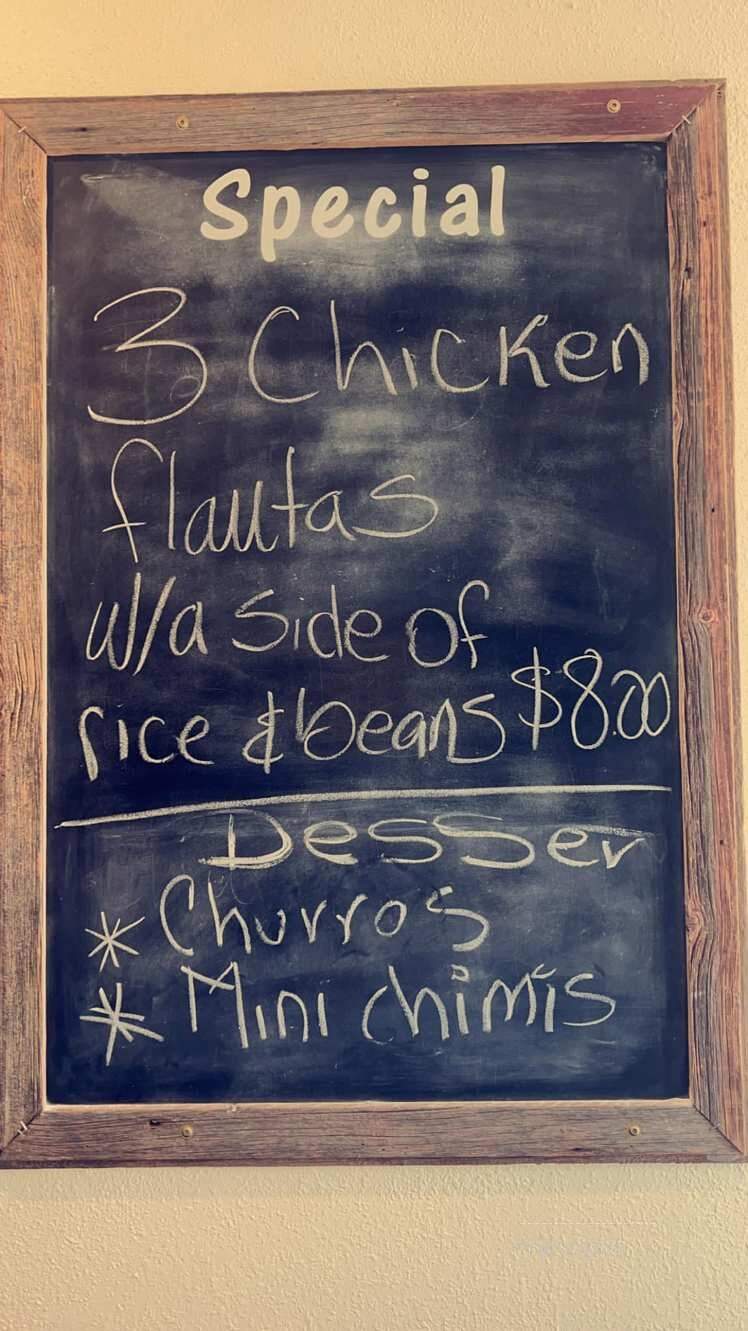 Special
3 Chicken
flautas
w/a Side of
rice & beans $8.00
Desser
* Churros
* Mini chimis